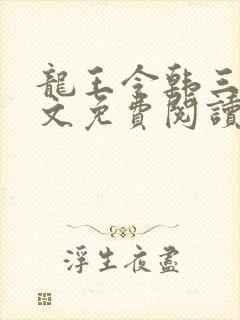 龍王令韩三
文免費閱讀
浮生夜盡